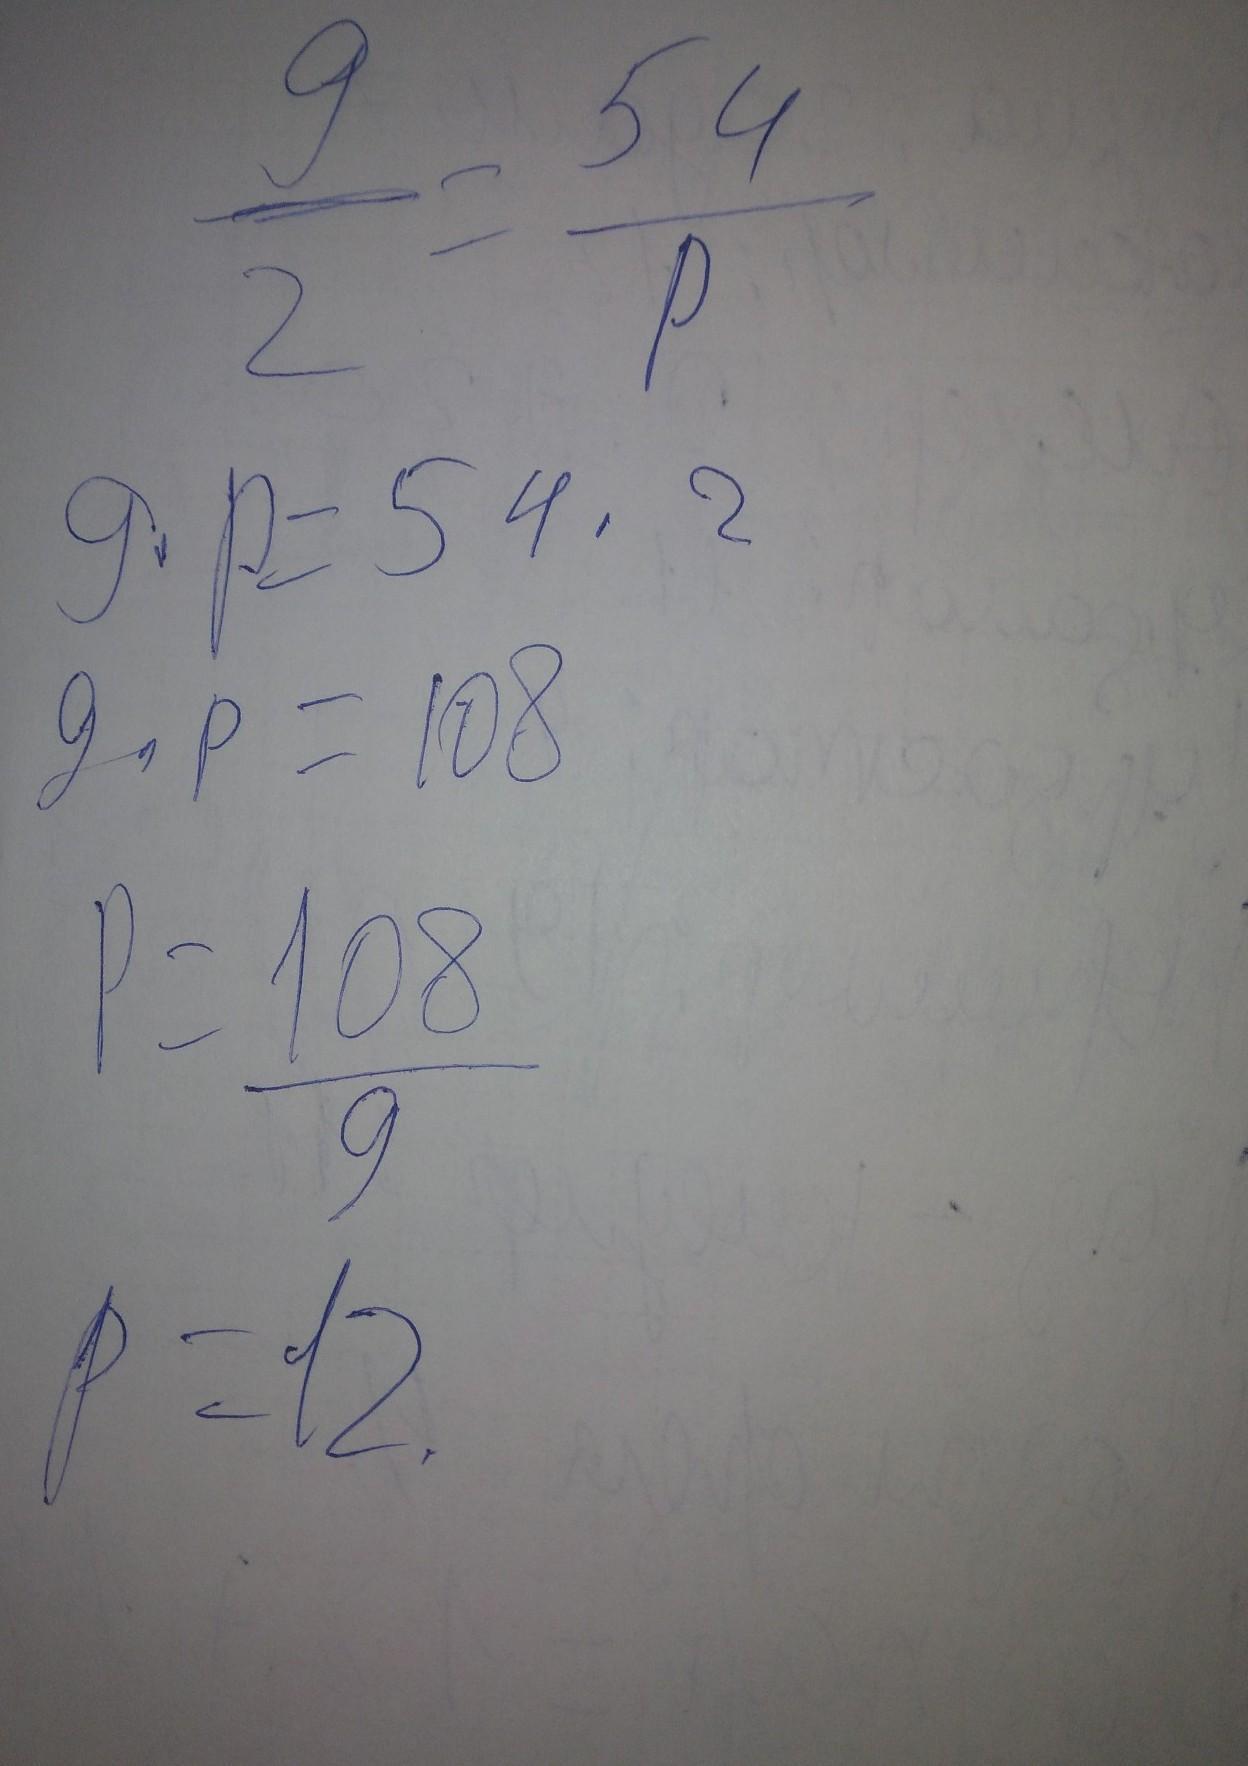 9/2 = 54/p
9 · p = 54 · 2
9 · p = 108
p = 108/9
p = 12.